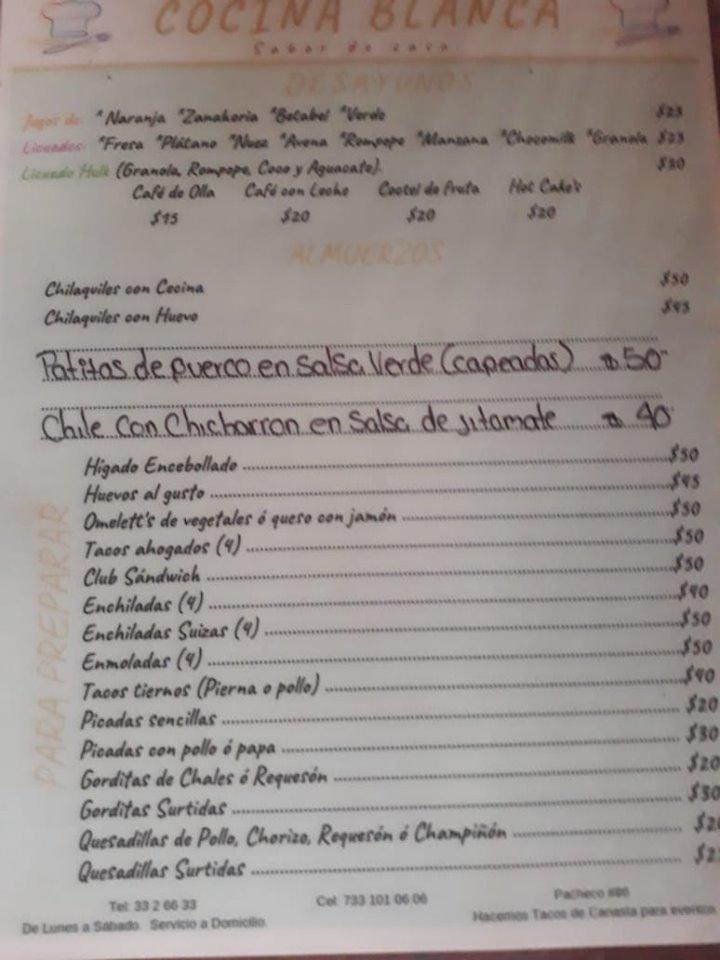 COCINA BLANCA
Sabor de casa
DESAYUNOS
Jugos de: *Naranja *Zanahoria *Betabel *Verde $23
Licuados: *Fresa *Plátano *Nuez *Avena *Rompope *Manzana *Chocomilk *Granola $23
Licuado Hulk (Granola, Rompope, Coco y Aguacate). $30
Café de Olla Café con Leche Coctel de Fruta Hot Cake's
$15 $20 $20 $20
ALMUERZOS
Chilaquiles con Cecina $50
Chilaquiles con Huevo $45
Patitas de puerco en salsa Verde (capeadas) $50
Chile Con Chicharron en Salsa de jitamate $40
PARA PREPARAR
Hígado Encebollado $50
Huevos al gusto $45
Omelett's de vegetales ó queso con jamón $50
Tacos ahogados (4) $50
Club Sándwich $50
Enchiladas (4) $40
Enchiladas Suizas (4) $50
Enmoladas (4) $50
Tacos tiernos (Pierna o pollo) $40
Picadas sencillas $20
Picadas con pollo ó papa $30
Gorditas de Chales ó Requesón $20
Gorditas Surtidas $30
Quesadillas de Pollo, Chorizo, Requesón ó Champiñón
Quesadillas Surtidas
Tel: 33 2 66 33 Cel: 733 101 06 06 Pacheco
De Lunes a Sábado. Servicio a Domicilio. Hacemos Tacos de Canasta para eventos